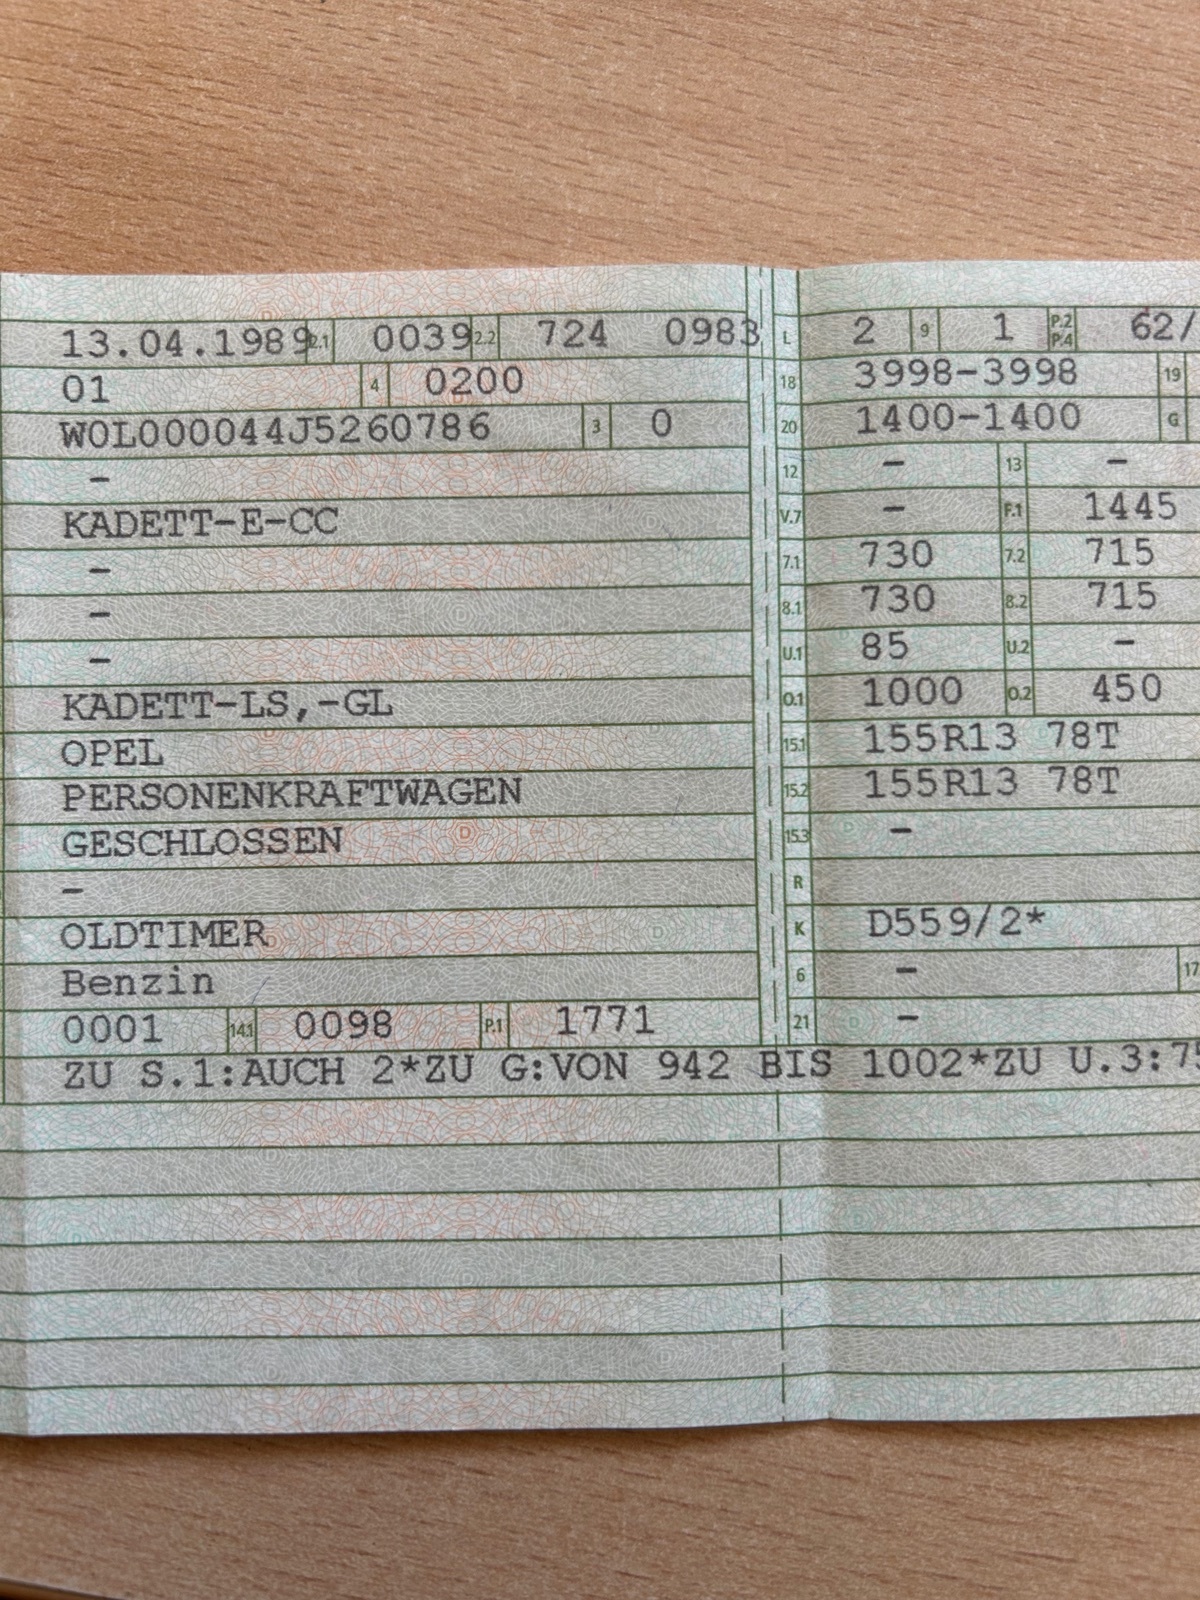 13.04.1989 2.1 0039 2.2 724 0983 L 2 9 1 P.2 P.4 62/
01 4 0200 18 3998-3998 19
W0L000044J5260786 3 0 20 1400-1400 G
- 12 - 13 -
KADETT-E-CC V.7 - F.1 1445
- 7.1 730 7.2 715
- 8.1 730 8.2 715
- U.1 85 U.2 -
KADETT-LS,-GL O.1 1000 O.2 450
OPEL 15.1 155R13 78T
PERSONENKRAFTWAGEN 15.2 155R13 78T
GESCHLOSSEN 15.3 -
- R
OLDTIMER K D559/2*
Benzin 6 - 17
0001 14.1 0098 P.1 1771 21 -
ZU S.1:AUCH 2*ZU G:VON 942 BIS 1002*ZU U.3:75